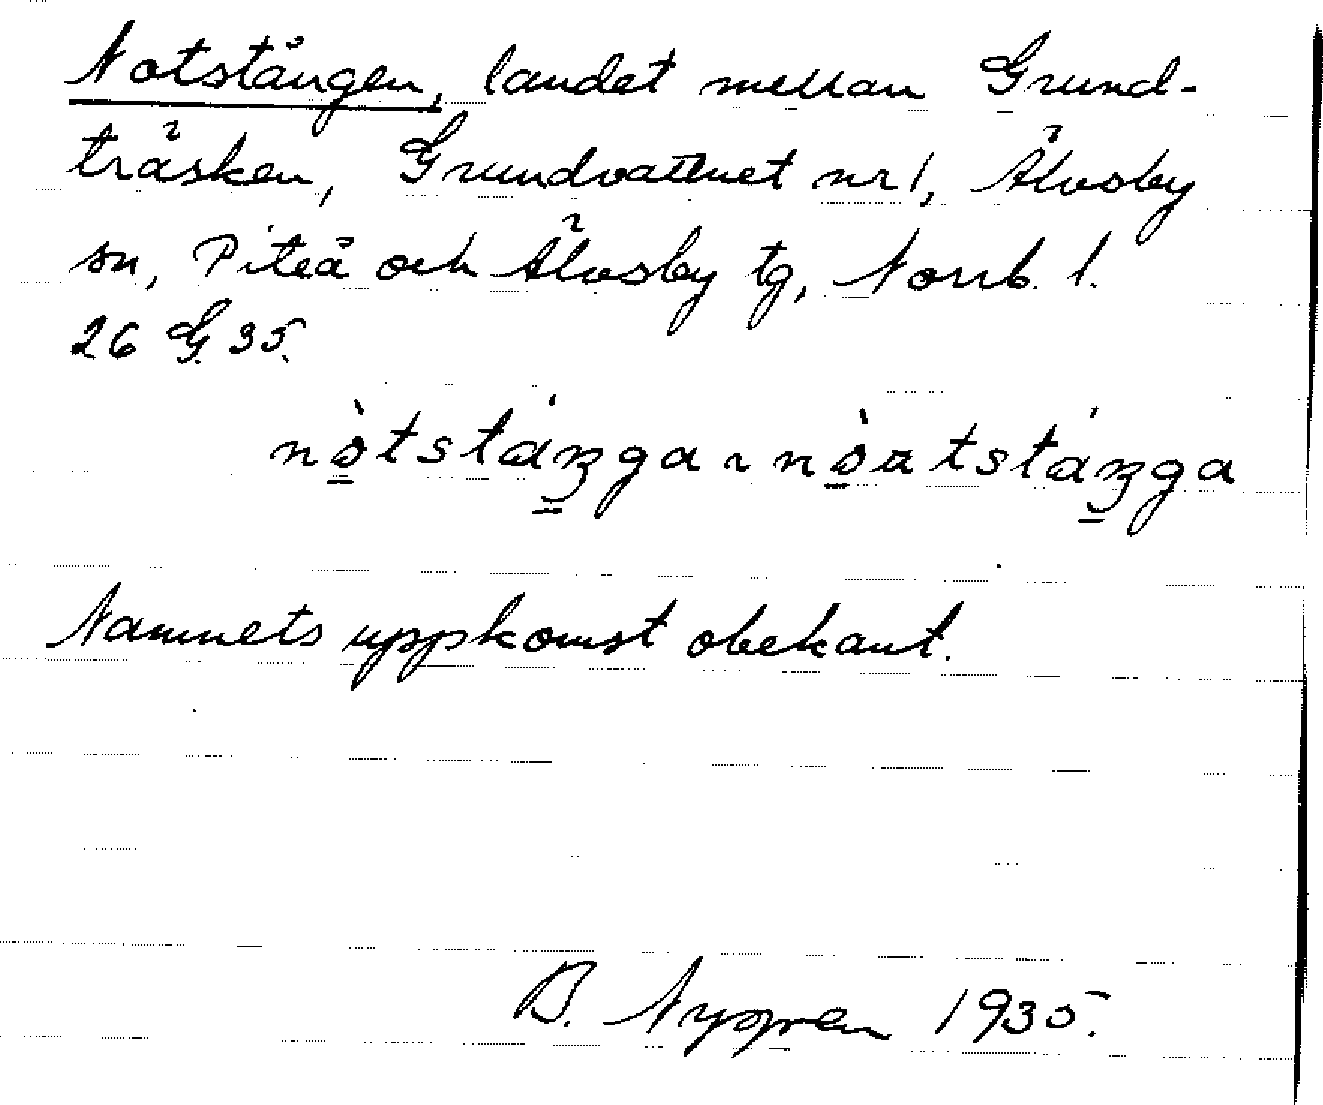 Notstången, landet mellan Grund-
träsken, Grundvattnet nr 1, Älvsby
sn, Piteå och Älvsby tg, Norrb. l.
26 G. 35.
Namnets uppkomst obekant.
B. Nygren 1935.